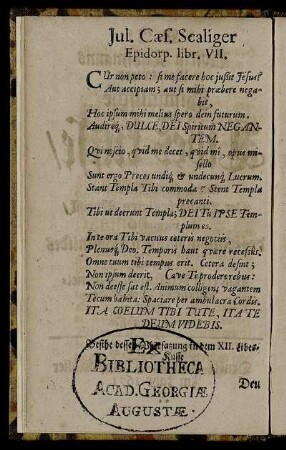 Jul. Cæs. Scaliger
Epidorp. libr. VII.
CUr non peto: si me facere hoc jußit Jesus?
Aut accipiam; aut si mihi præbere nega-
bit,
Hoc ipsum mihi melius spero dein futurum.
Audireq; DULCE, DEI Spiritum NEGAN-
TEM.
Qui nescio, qvid me decet, qvid mi, opus mi-
sello
Sunt ergo Preces undiq; & undecunq; Lucrum.
Stant Templa Tibi commoda? Stent Templa
precanti.
Tibi ut deerunt Templa; DEI TU IPSE Tem-
plum es.
Inte ora Tibi vacuus ceteris negotiis,
Plenusq; Deo. Temporis haut qvare recesseris.
Omne tuum tibi tempus erit. Cetera desint;
Non ipsum deerit, Cave Te prodereribus:
Non deesse sat est. Animum colligens vagantem
Tecum habita: Spaciare per ambulacra Cordis.
ITA COELUM TIBI TUTE, ITA TE
DEUM VIDEBIS.
Besihe dessen in dem XII. Liebes-
Kusse
Den
EX
BIBLIOTHECA
ACAD. GEORGIÆ
AUGUSTÆ.